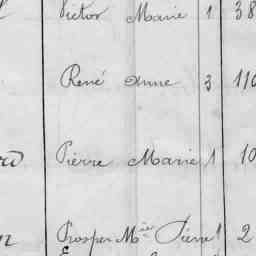 Victor Marie 1 38
René Anne 3 110
Pierre Marie 1 10
Prosper Mie Pierre 1 2